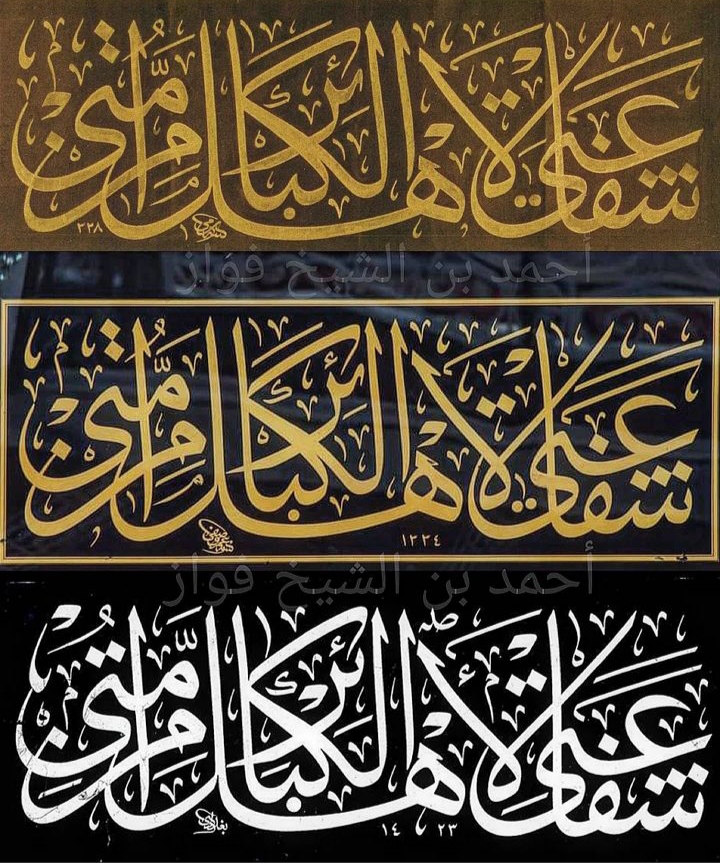 شفاعتى لاهل الكبائر من امتى
٢٣٨
أحمد بن الشيخ فواز
شفاعتى لاهل الكبائر من امتى
أحمد بن الشيخ فواز
شفاعتى لاهل الكبائر من امتى
١٤٢٣